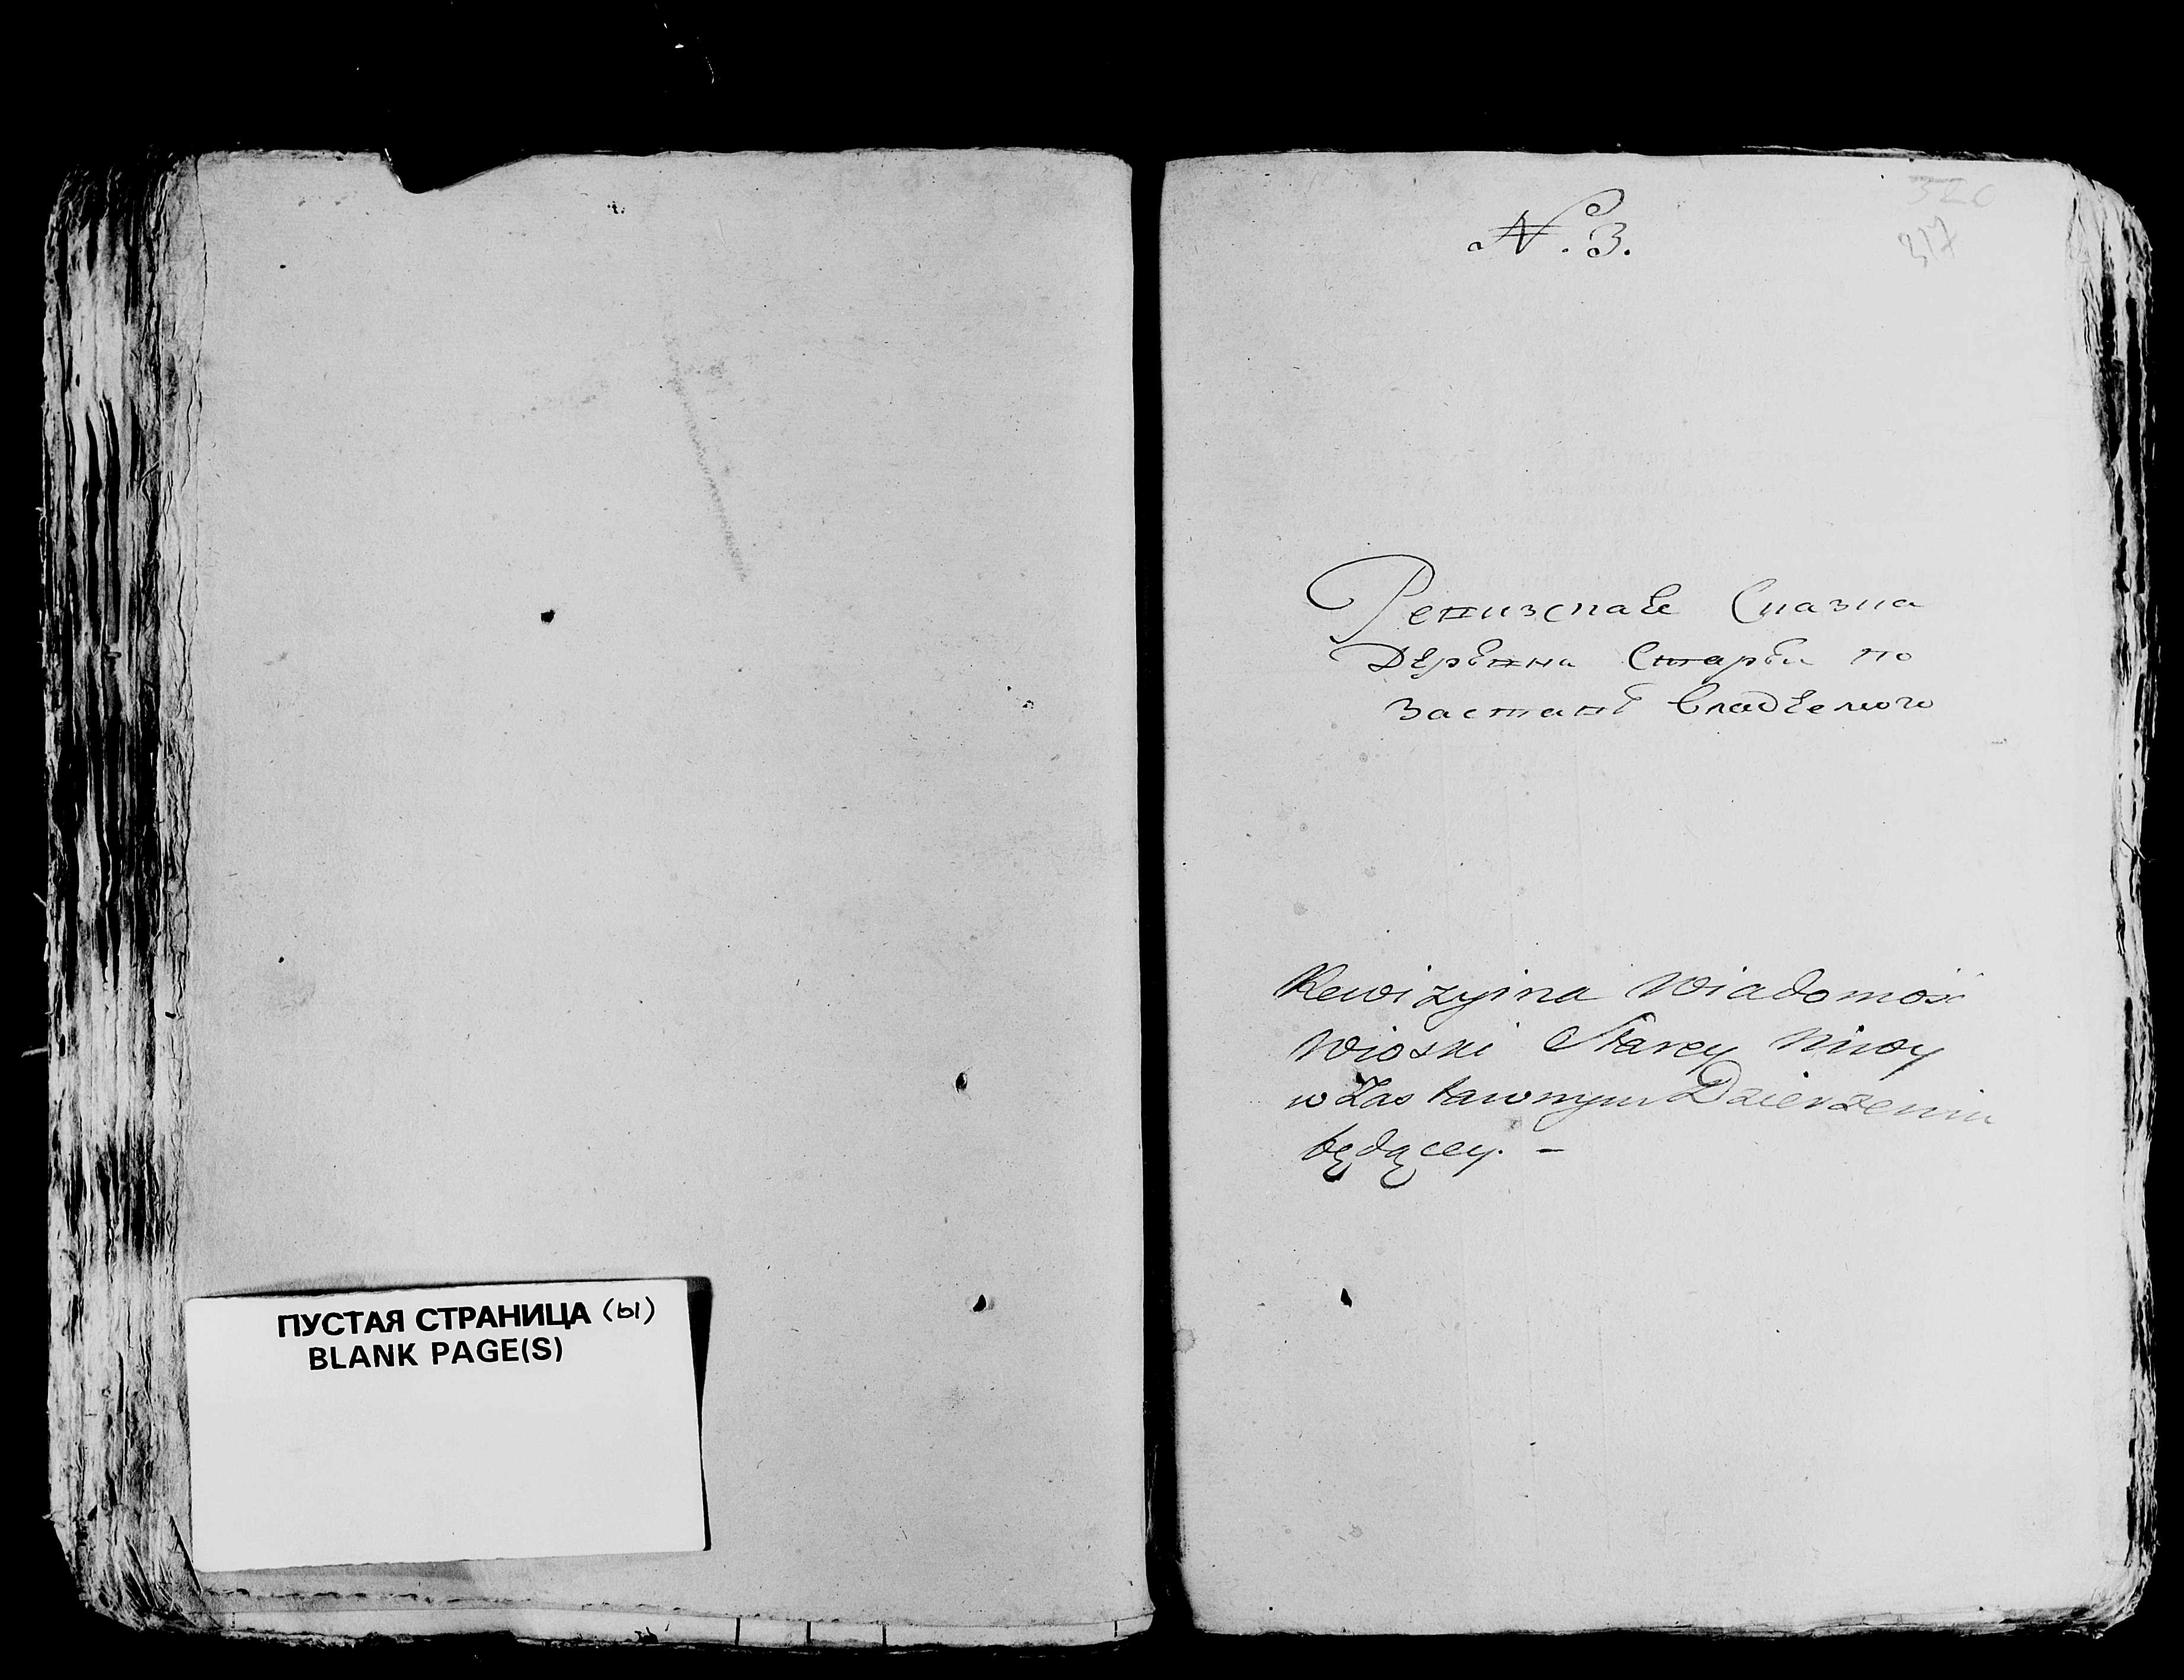 ПУСТАЯ СТРАНИЦА (ы)
BLANK PAGE(S)
N. 3.
317
Ревизская Сказка
Деревни Старой по
Заставѣ владѣемого
Rewizyina Wiadomość
Wioski Starey Niwy
w Zastawnym Dzierżeniu
będącey. –